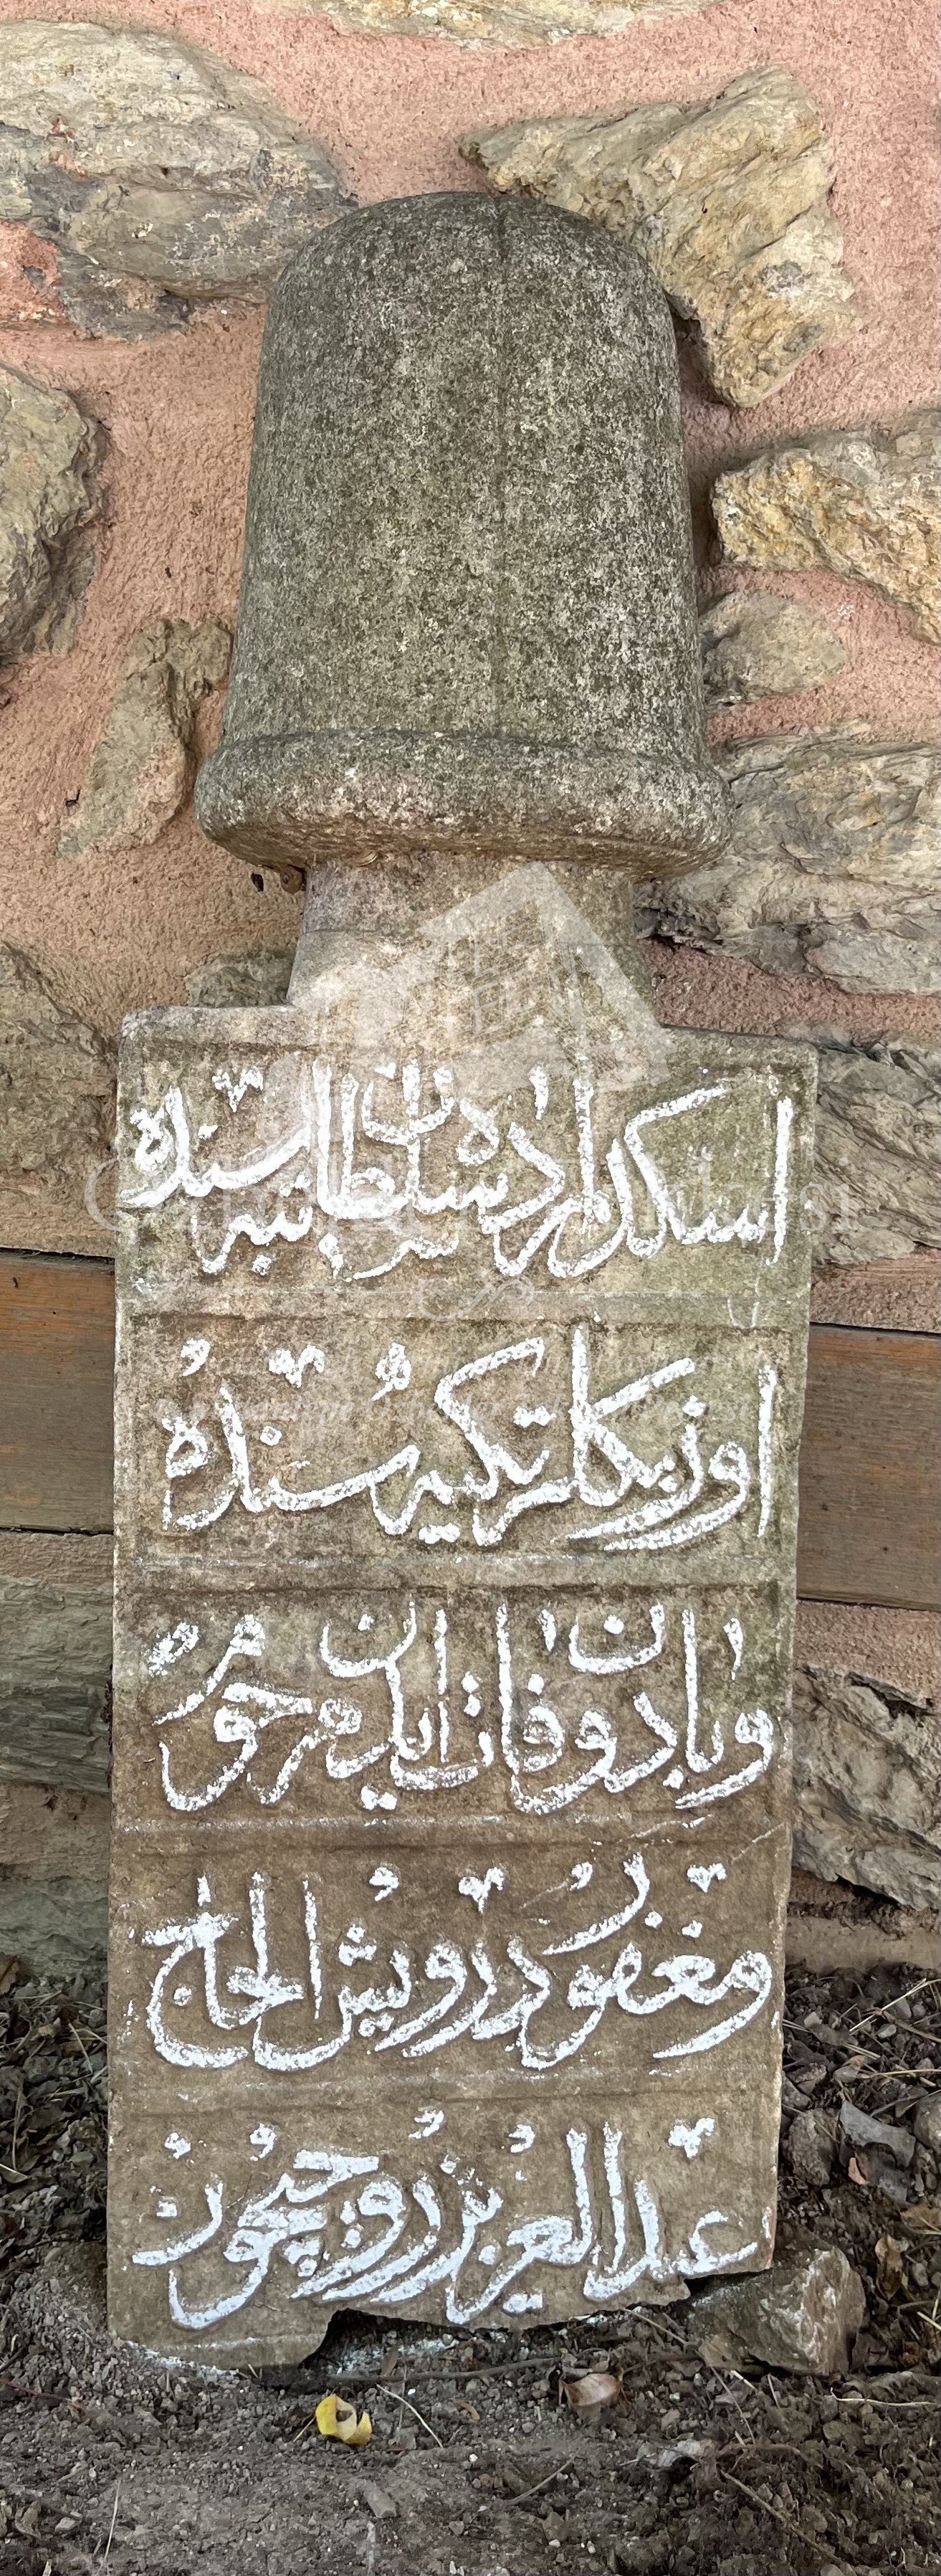 اسكدارده سلطان تپه سنده
اوزبكلر تكيه سنده
وفات ايدن مرحوم
و مغفور درويش الحاج
عبد العزيز روحيچون